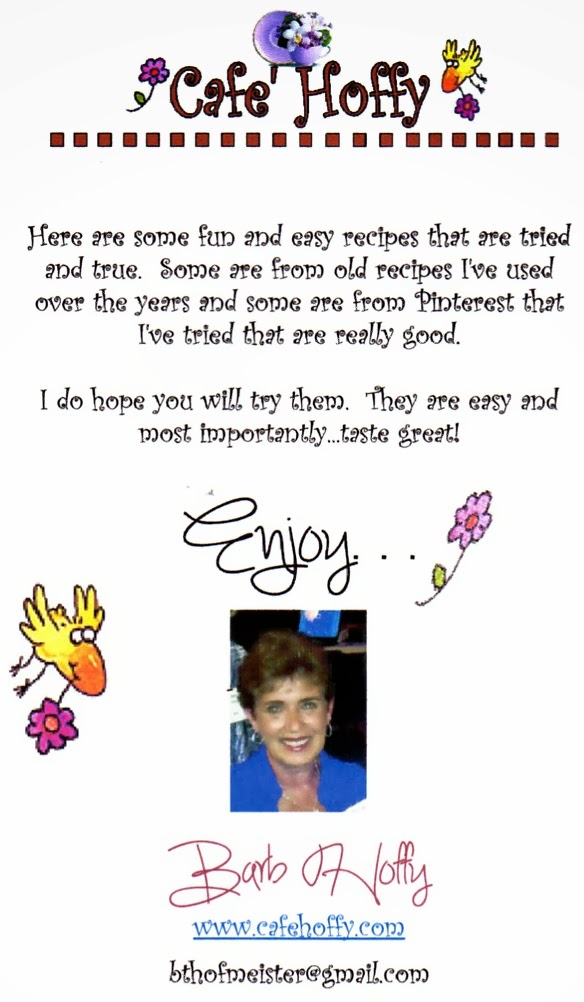 Cafe' Hoffy
Here are some fun and easy recipes that are tried
and true. Some are from old recipes I've used
over the years and some are from Pinterest that
I've tried that are really good.
I do hope you will try them. They are easy and
most importantly...taste great!
Enjoy. . .
Barb Hoffy
www.cafehoffy.com
bthofmeister@gmail.com